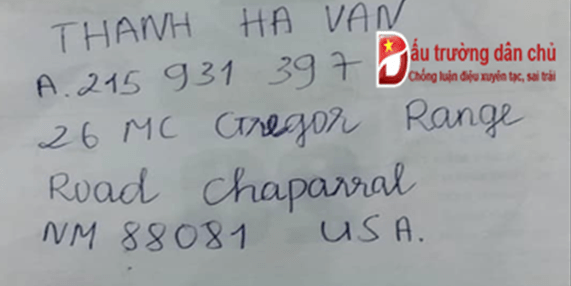 THANH HA VAN
A.215 931 397
Đấu trường dân chủ
Chống luận điệu xuyên tạc, sai trái
26 MC Gregor Range
Road Chaparral
NM 88081 USA.